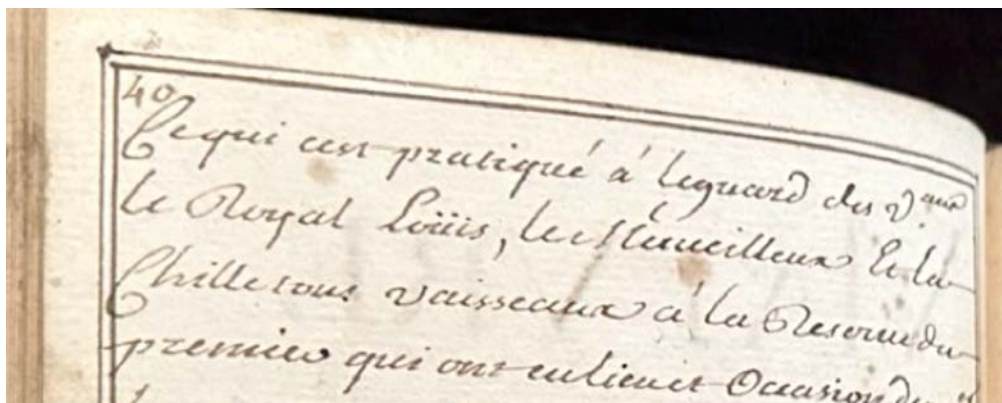 40
Ce qui cest pratiqué à leguard des v.aux
le Royal Loüis, le Merueilleux Et la
Chille tous vaisseaux à la Reserue du
premier qui ont eu lieu et Occasion